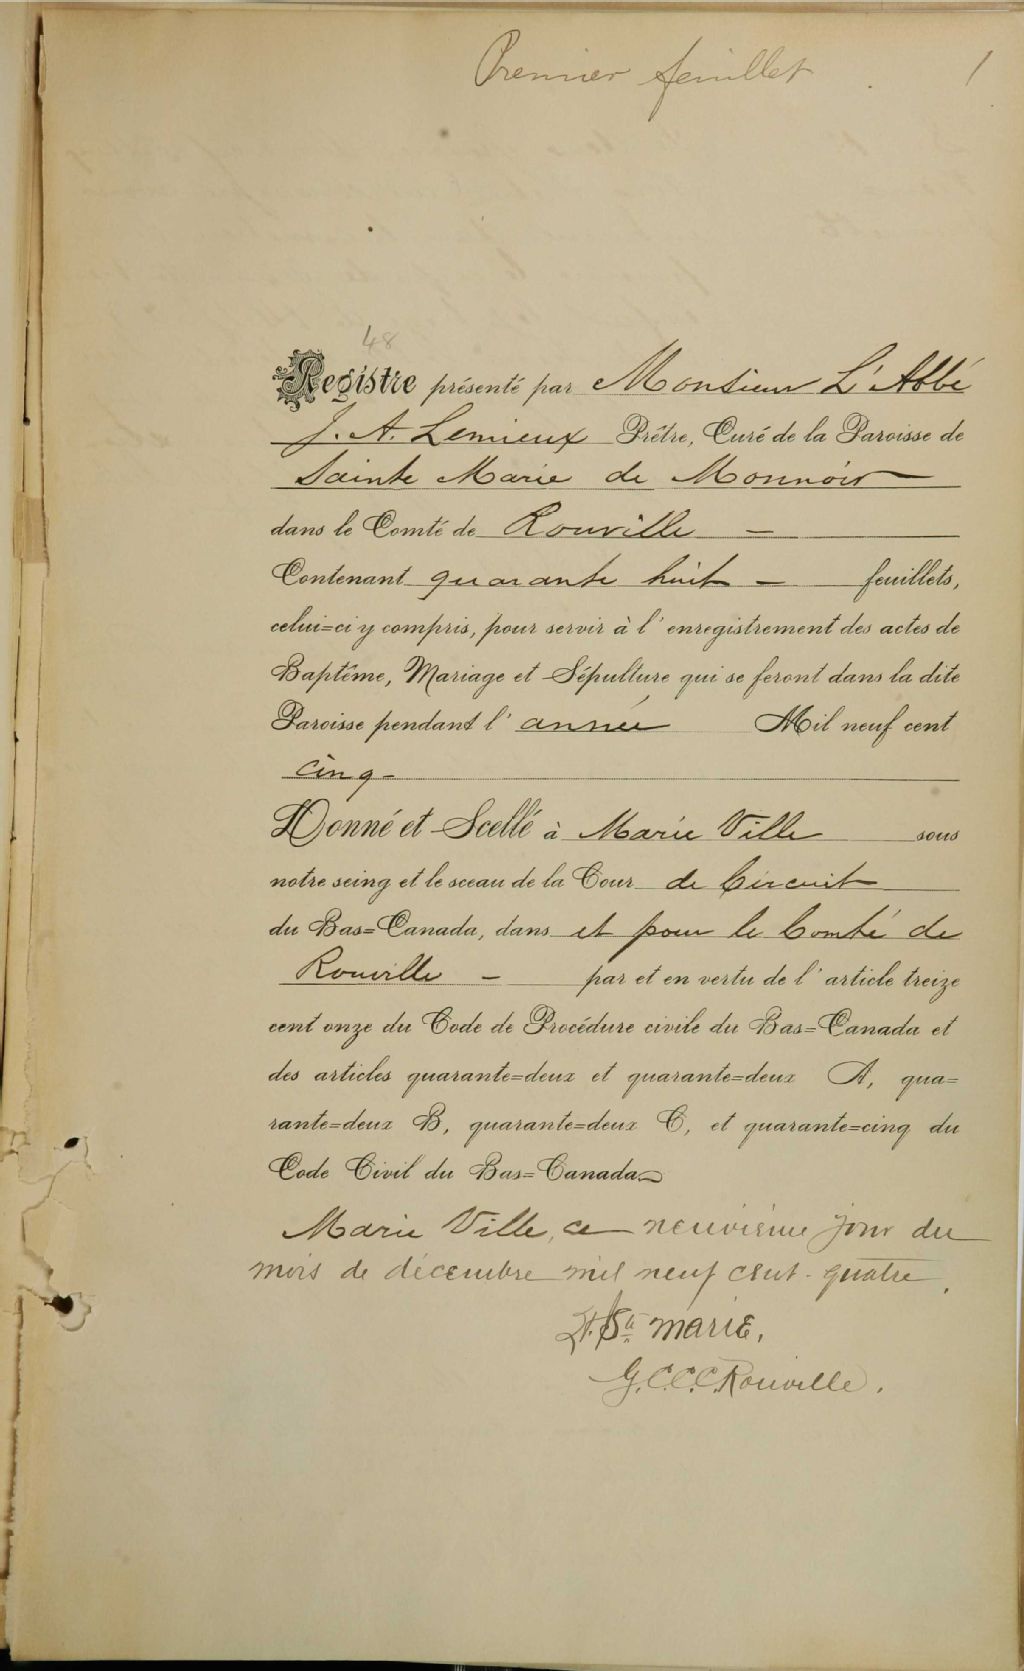 Premier feuillet 1
48
Registre présenté par Monsieur L'Abbé
J. A. Lemieux Prêtre, Curé de la Paroisse de
Sainte Marie de Monnoir
dans le Comté de Rouville —
Contenant quarante huit — feuillets,
celui=ci y compris, pour servir à l'enregistrement des actes de
Baptême, Mariage et Sépulture qui se feront dans la dite
Paroisse pendant l'année Mil neuf cent
cinq -
Donné et Scellé à Marie Ville sous
notre seing et le sceau de la Cour de Circuit
du Bas=Canada, dans et pour le Comté de
Rouville — par et en vertu de l'article treize
cent onze du Code de Procédure civile du Bas=Canada et
des articles quarante=deux et quarante=deux A, qua=
rante=deux B, quarante=deux C, et quarante=cinq du
Code Civil du Bas=Canada
Marie Ville, ce neuvième jour du
mois de décembre mil neuf cent - quatre.
Ste marie,
G.C.C.C. Rouville.